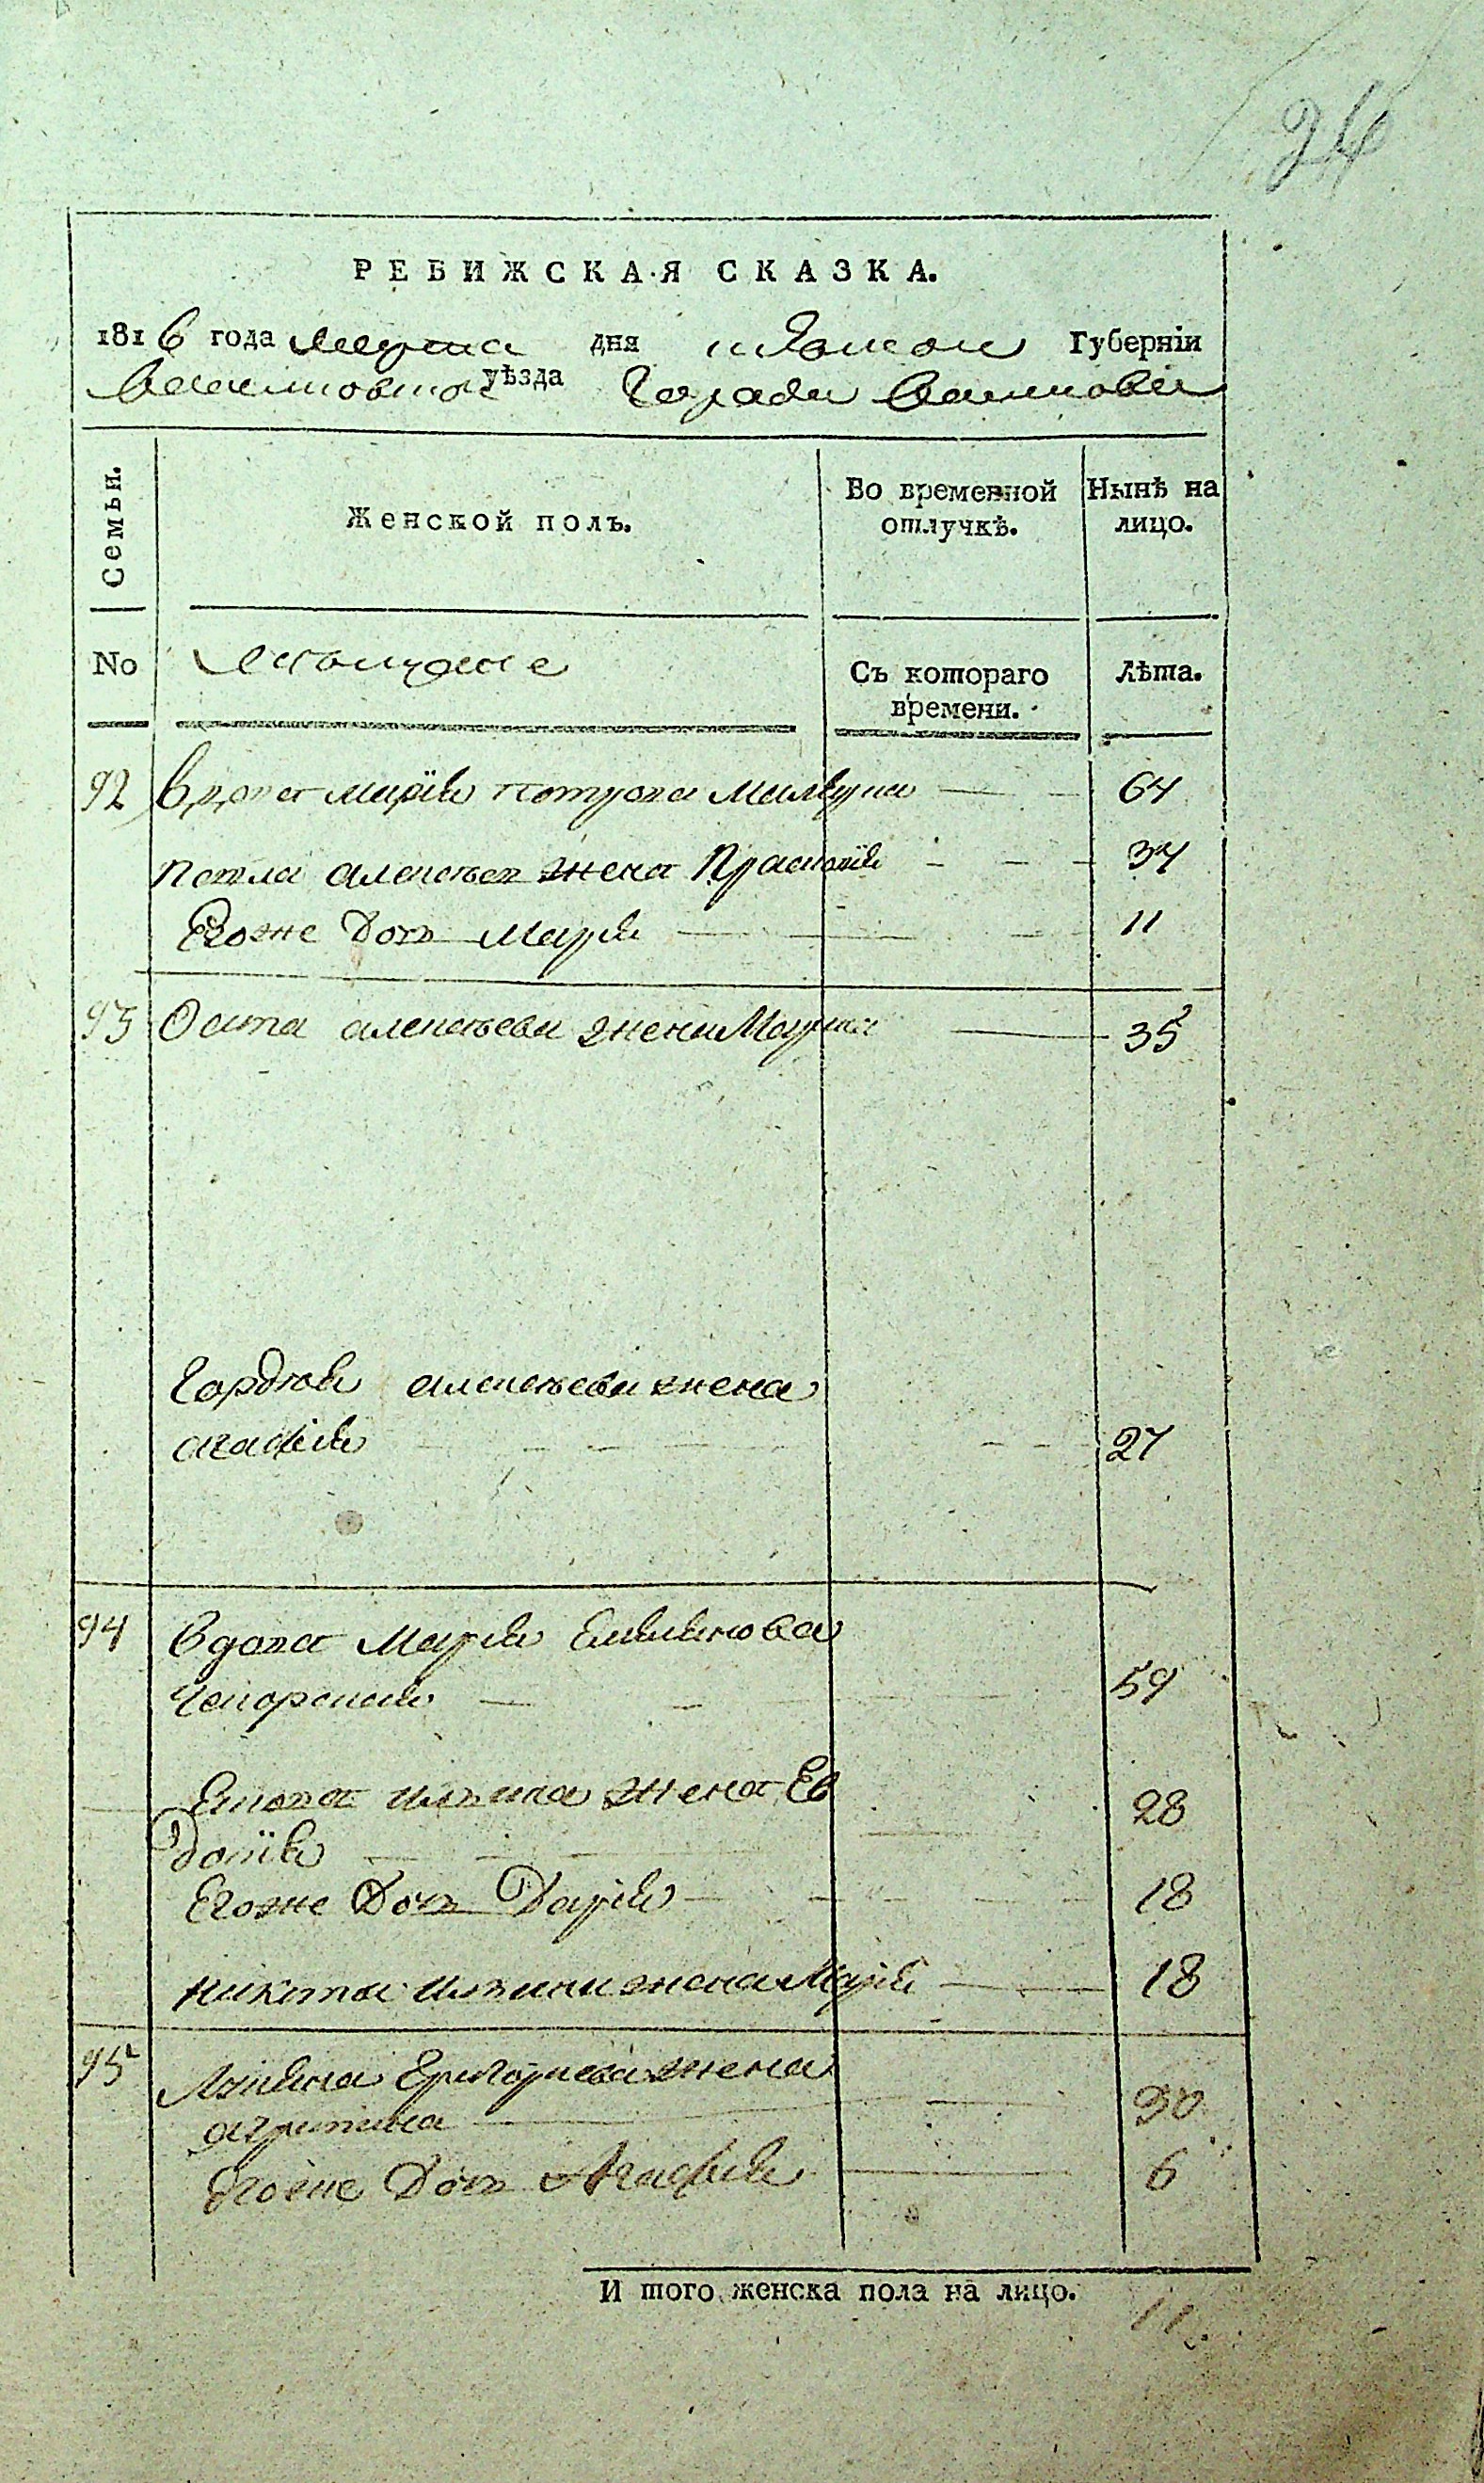 24
РЕВИЖСКАЯ СКАЗКА.
1816 года Марта дня Губерніи
уѣзда Города
Семьи.
Женской полъ.
Во временной отлучкѣ.
Нынѣ на лицо.
No
Съ котораго времени.
Лѣта.
92 Вдова марія петрова 64
павла алексѣева жена Прасковія 34
Егоже Дочь Марія 11
93 алексѣева жена Марина 35
Гордѣя алексѣева жена
агафія 27
94 Вдова Марія Емелянова
59
жена Ев
докія 28
Егоже Дочь Дарія 18
никиты ильина жена Марія 18
95 Григорьева жена
агрипина 30
Егоже Дочь Агафія 6
И того женска пола на лицо. 11